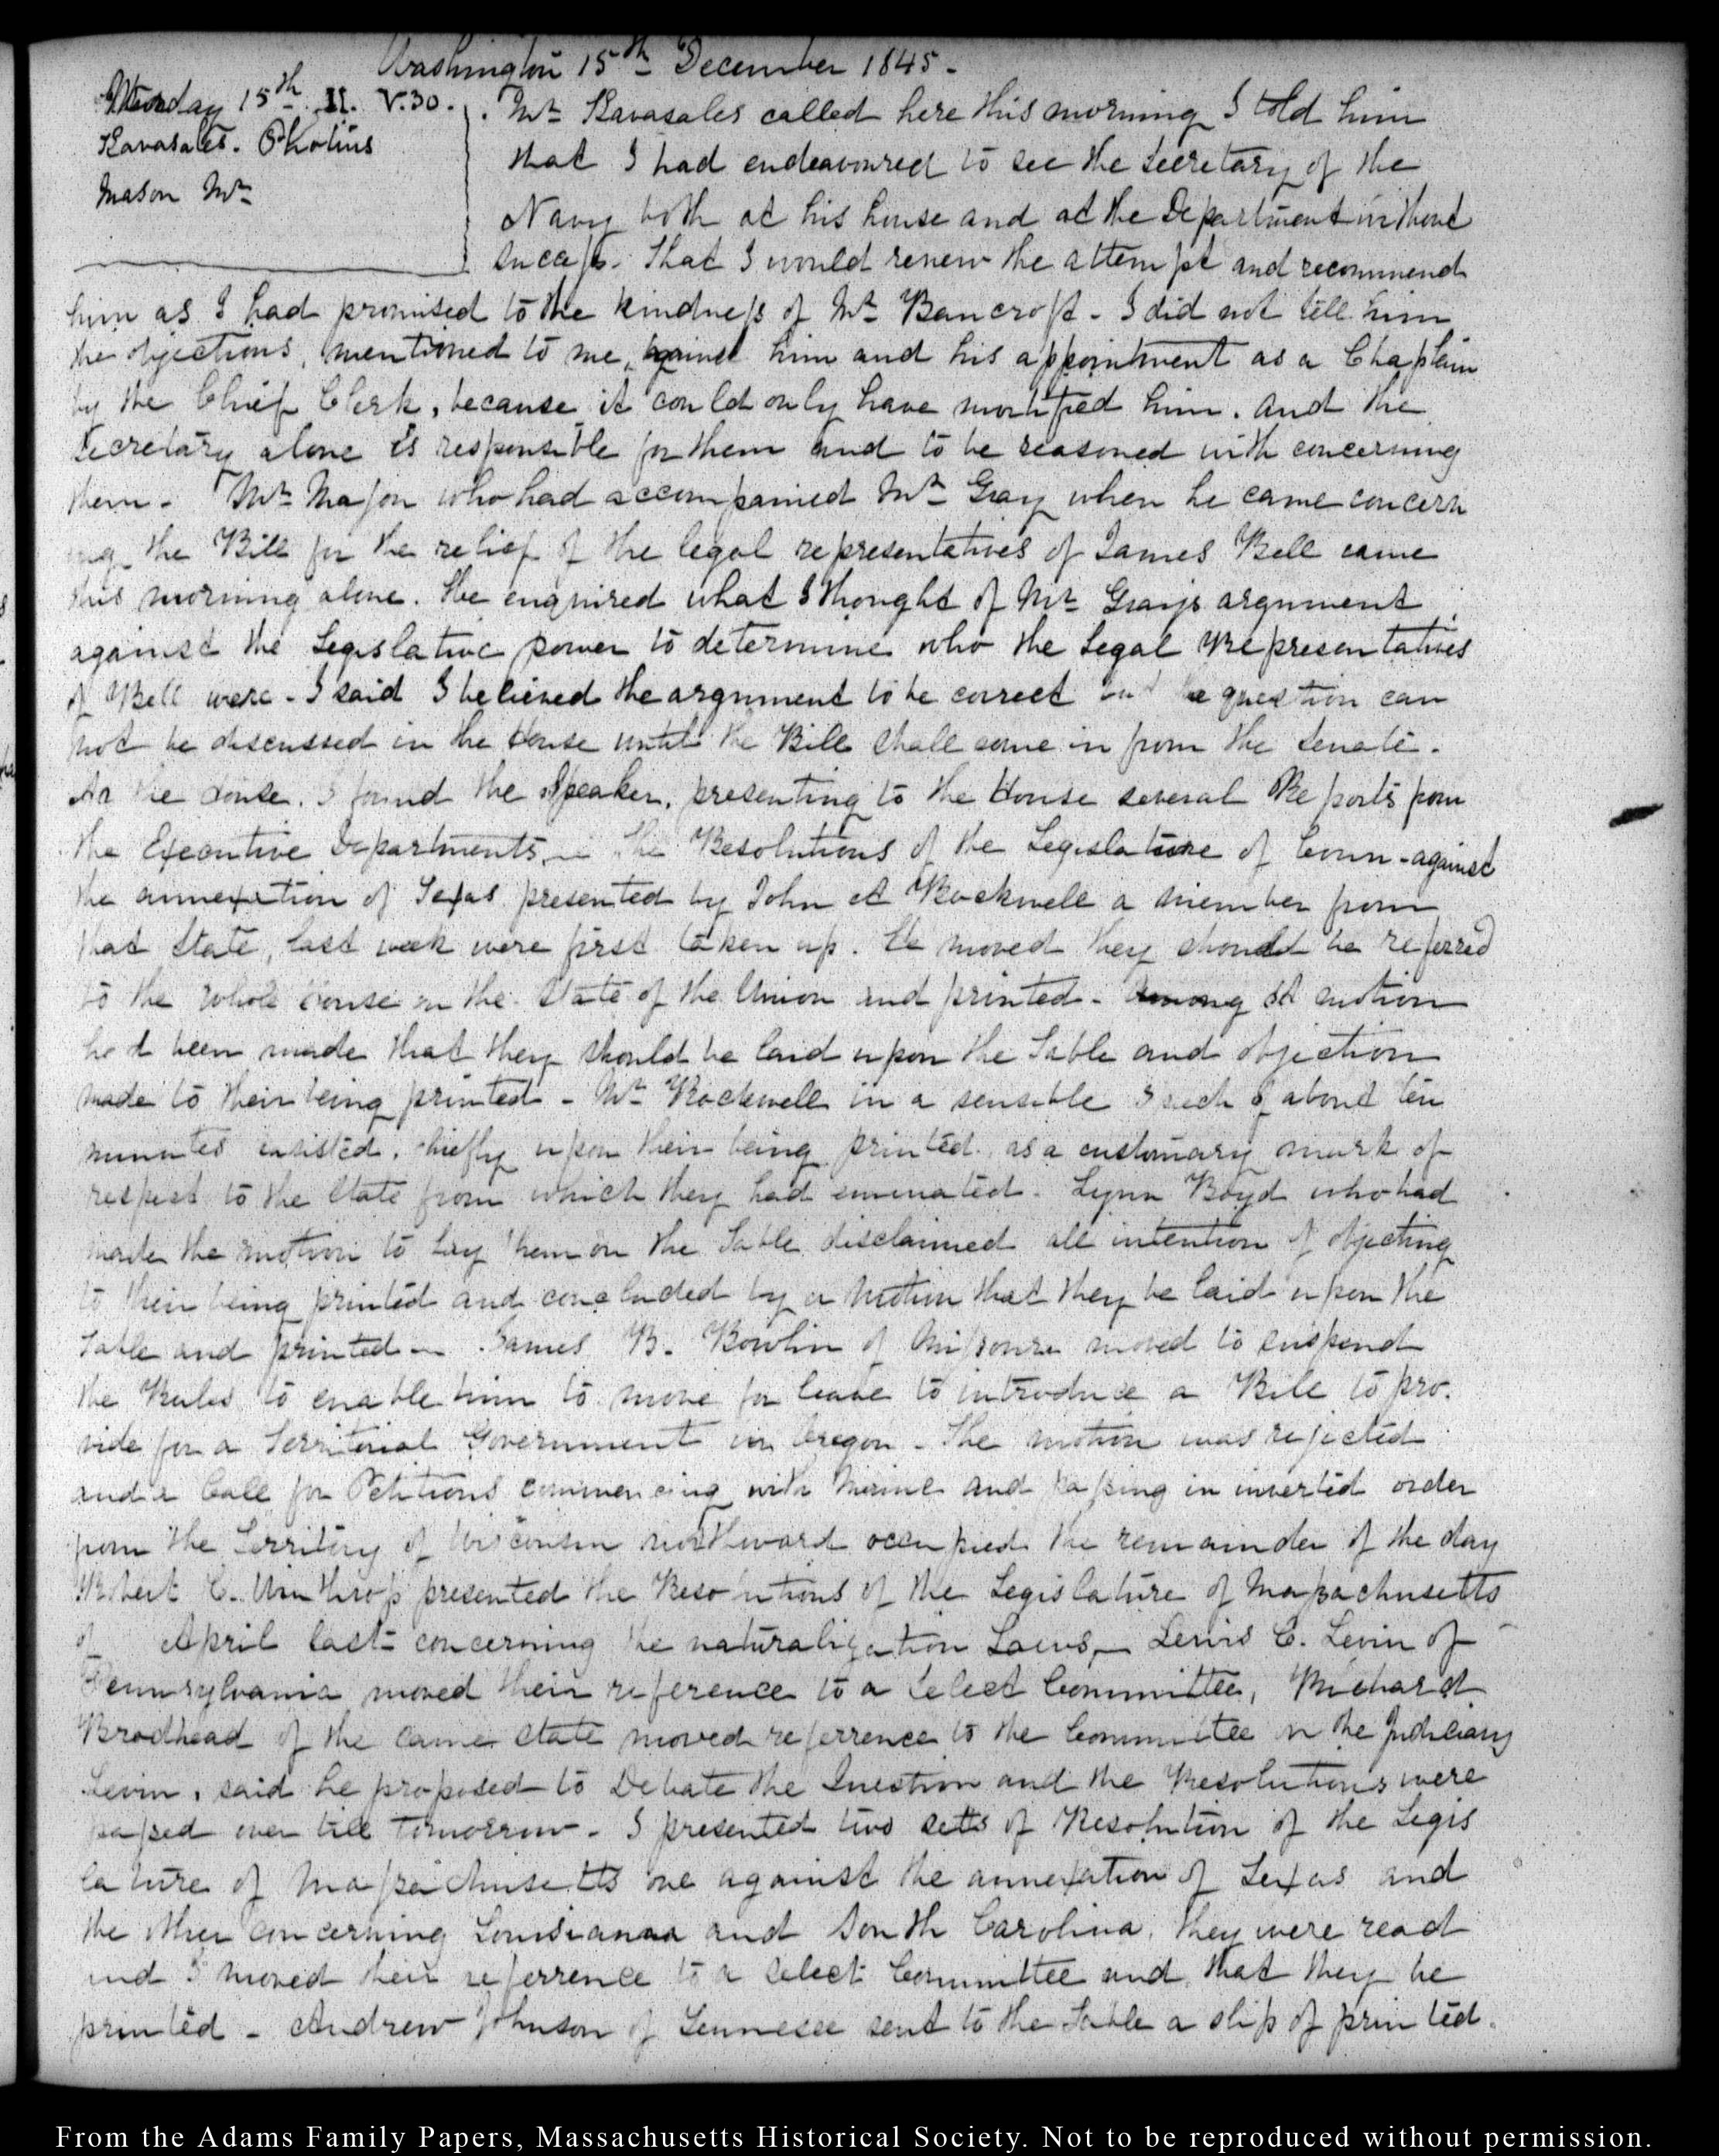 Washington 15th December 1845-
Monday 15th II. V.30.
Kavasales. Photius
Mason Mr
Mr Kavasales called here this morning I told him
that I had endeavoured to see the Secretary of the
Navy both at his house and at the Department without
success. That I would renew the attempt and recommend
him as I had promised to the kindness of Mr Bancroft - I did not tell him
the objections, mentioned to me, against him and his appointment as a Chaplain
by the Chief Clerk, because it could only have mortified him. and the
Secretary alone is responsible for them and to be reasoned with concerning
them - Mr Mason who had accompanied Mr Gray when he came concern
ing the Bill for the relief of the legal representatives of James Bell came
this morning alone. He enquired what I thought of Mr Grays argument
against the Legislative power to determine who the Legal Representatives
of Bell were - I said I believed the argument to be correct but the question can
not be discussed in the House until the Bill shall come in from the Senate.
At the House. I found the Speaker, presenting to the House several Reports from
the Executive Departments, the Resolutions of the Legislature of Conn - against
the annexation of Texas presented by John A Rockwell a member from
that State, last week were first taken up. He moved they should be referred
to the whole House on the State of the Union and printed - motion
had been made that they should be laid upon the Table and objection
made to their being printed - Mr Rockwell in a sensible speech of about ten
minutes insisted, chiefly upon their being printed. as a customary mark of
respect to the State from which they had emenated. Lynn Boyd who had
made the motion to lay them on the Table disclaimed all intention of objecting
to their being printed and concluded by a motion that they be laid upon the
Table and printed - James B. Bowlin of Missouri moved to suspend
the Rules to enable him to move for leave to introduce a Bill to pro.
vide for a Territorial Government in Oregon - The motion was rejected
and a Call for Petitions commencing with Maine and passing in inverted order
from the Territory of Wisconsin northward occupied the remainder of the day
Robert C. Winthrop presented the Resolutions of the Legislature of Massachusetts
of April last - concerning the naturalization Laws, - Lewis C. Levin of
Pennsylvania moved their reference to a Select Committee, Richard
Brodhead of the same State moved referrence to the Committee on the Judiciary
Levin, said he proposed to Debate the Question and the Resolutions were
passed over till tomorrow - I presented two setts of Resolution of the Legis
lature of Massachusetts one against the annexation of Texas and
the other concerning Louisiana and South Carolina. they were read
and I moved their referrence to a Select Committee and that they be
printed - Andrew Johnson of Tennesee sent to the Table a slip of printed.
From the Adams Family Papers, Massachusetts Historical Society. Not to be reproduced without permission.